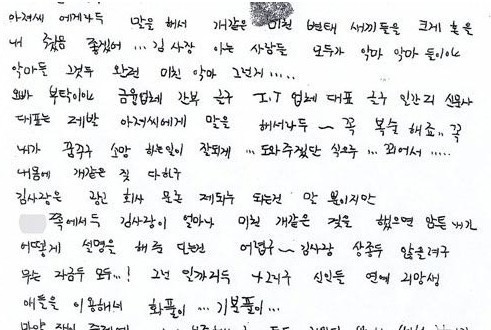 아저씨 에게라두 말을 해서 개같은 미친 변태 새끼들을 크게 혼을
내 줬음 좋겠어 ... 김사장 아는 사람들 모두가 악마 악마 들이야
악마들 그것두 완전 미친 악마 그런거 .....
오빠 부탁이야 금융업체 간부 하구 I.T 업체 대표 하구 일간지 신문사
대표는 제발 아저씨에게 말을 해서라두 ~ 꼭 복수 해죠.. 꼭
내가 꿈꾸구 소망 하는일이 잘되게 ... 도와주겠단 식으루 ... 꾀어서 .....
내몸에 개같은 짓 다하구
김사장은 광고 회사 제의두 되는건 말 뿐이지만
쪽에서두 김사장이 얼마나 미친 개같은 것을 했으면 암튼 내가
어떻게 설명을 해 준단는건 어렵구 ~ 김사장 상종두 않을려구
우는 지금두 모두...! 그런 일까지두 그리구 신인들 연예 지망생
애들을 이용해서 화풀이 ... 기분풀이 ...